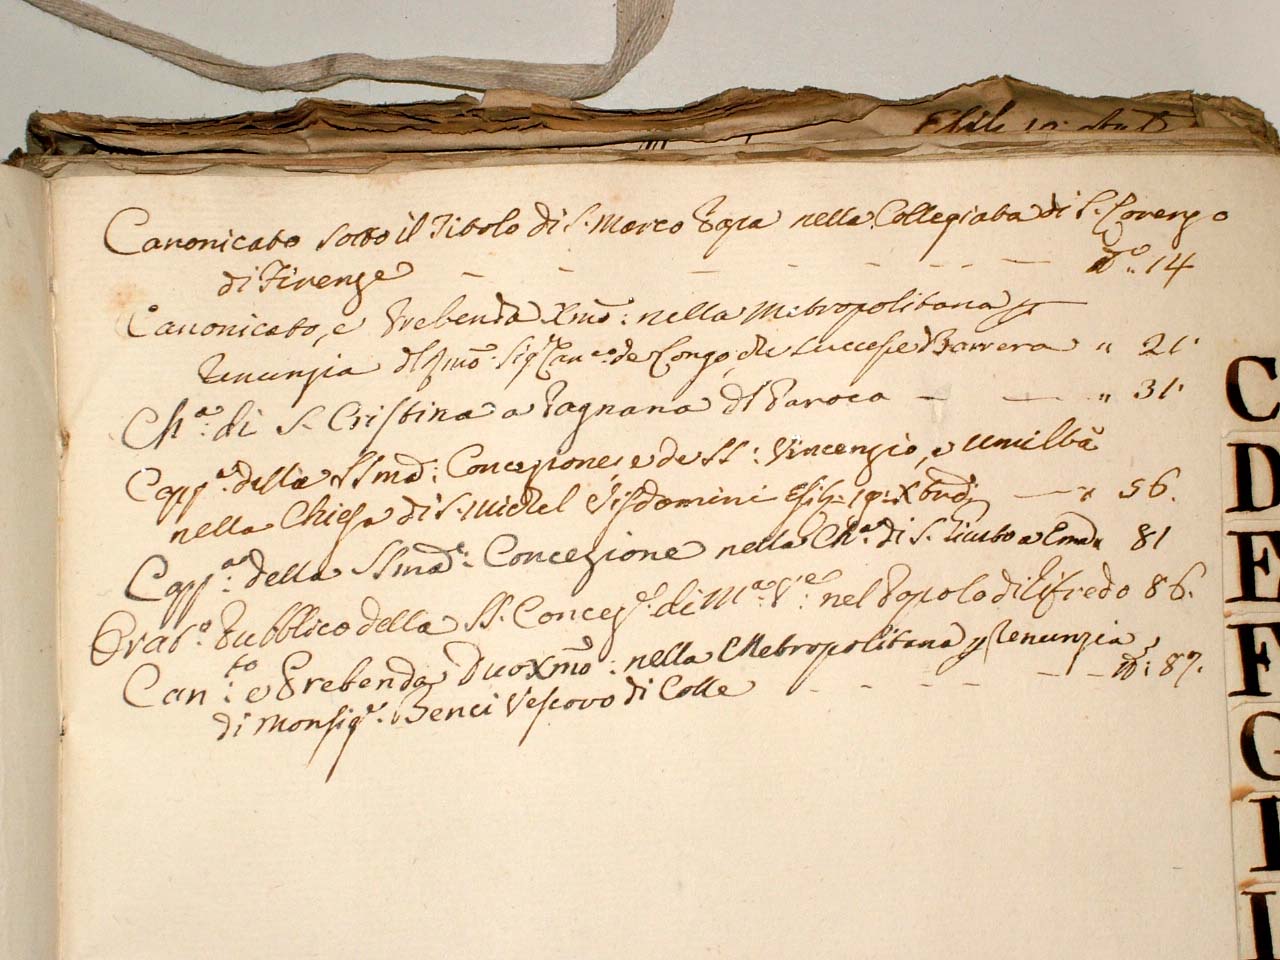 Canonicato sotto il Titolo di S. Marco Papa nella Collegiata di S. Lorenzo
di Firenze - - - - - - - n.° 14
Canonicato, e Prebenda Xma: nella Metropolitana p
Renunzia dell' Sig.r Can.co de Longo, Barrera " 21.
Ch.a di S. Cristina a Pagnana di Paroca — — " 31.
Capp.a della SSma: Concezione, e de SS: Vincenzio, e Umiltà
nella Chiesa di S. Michel Visdomini — " 56.
Capp.a della SSma: Concezione nella Ch.a di S. a Ema " 81
Orat.o Pubblico della SS. Concez.e di M.a V.e nel Popolo di Rifredo 86.
Can.to e Prebenda Duoxma: nella Metropolitana p Renunzia
di Monsig.r Benci Vescovo di Colle - - - - - - 87.
C
D
E
F
G
I
L